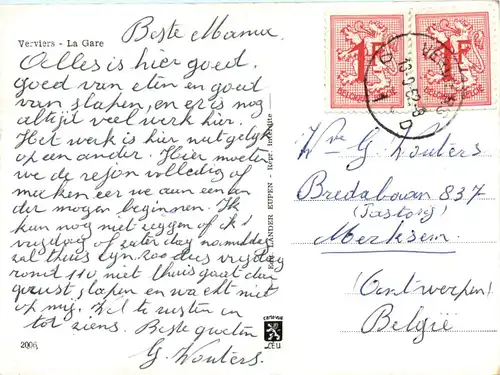 Verviers - La Gare
Beste Mama
Alles is hier goed.
Goed van eten en goed
van slapen, en er is nog
altijd veel werk hier.
Het werk is hier niet gelijk
op een ander. Hier moeten
we de rejon volledig af
maken eer we aan een an
der mogen beginnen. Ik
kan nog niet zeggen of ik
vrijdag of zaterdag namiddag
zal thuis zijn. Zoo dus vrijdag
rond niet thuis gaat dan
gerust slapen en wacht niet
op mij. Wel te rusten en
tot ziens. Beste groeten
G. Wouters.
2006
EDIT. LANDER EUPEN - Repr. interdite
CEU
1F
BELGIE-BELGIQUE
1F
Wve G. Wouters
Bredabaan 837
(Pastorij)
Merksem.
(Antwerpen)
België